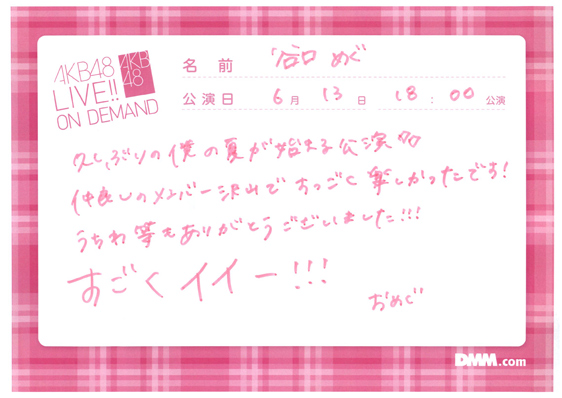 AKB48
LIVE!!
ON DEMAND
AKB
48
名 前 谷口 めぐ
公演日 6月 13日 18:00 公演
久しぶりの僕の夏が始まる公演
仲良しのメンバー沢山ですっごく楽しかったです!
うちわ等もありがとうございました!!!
すごくイイー!!!
おめぐ
DMM.com